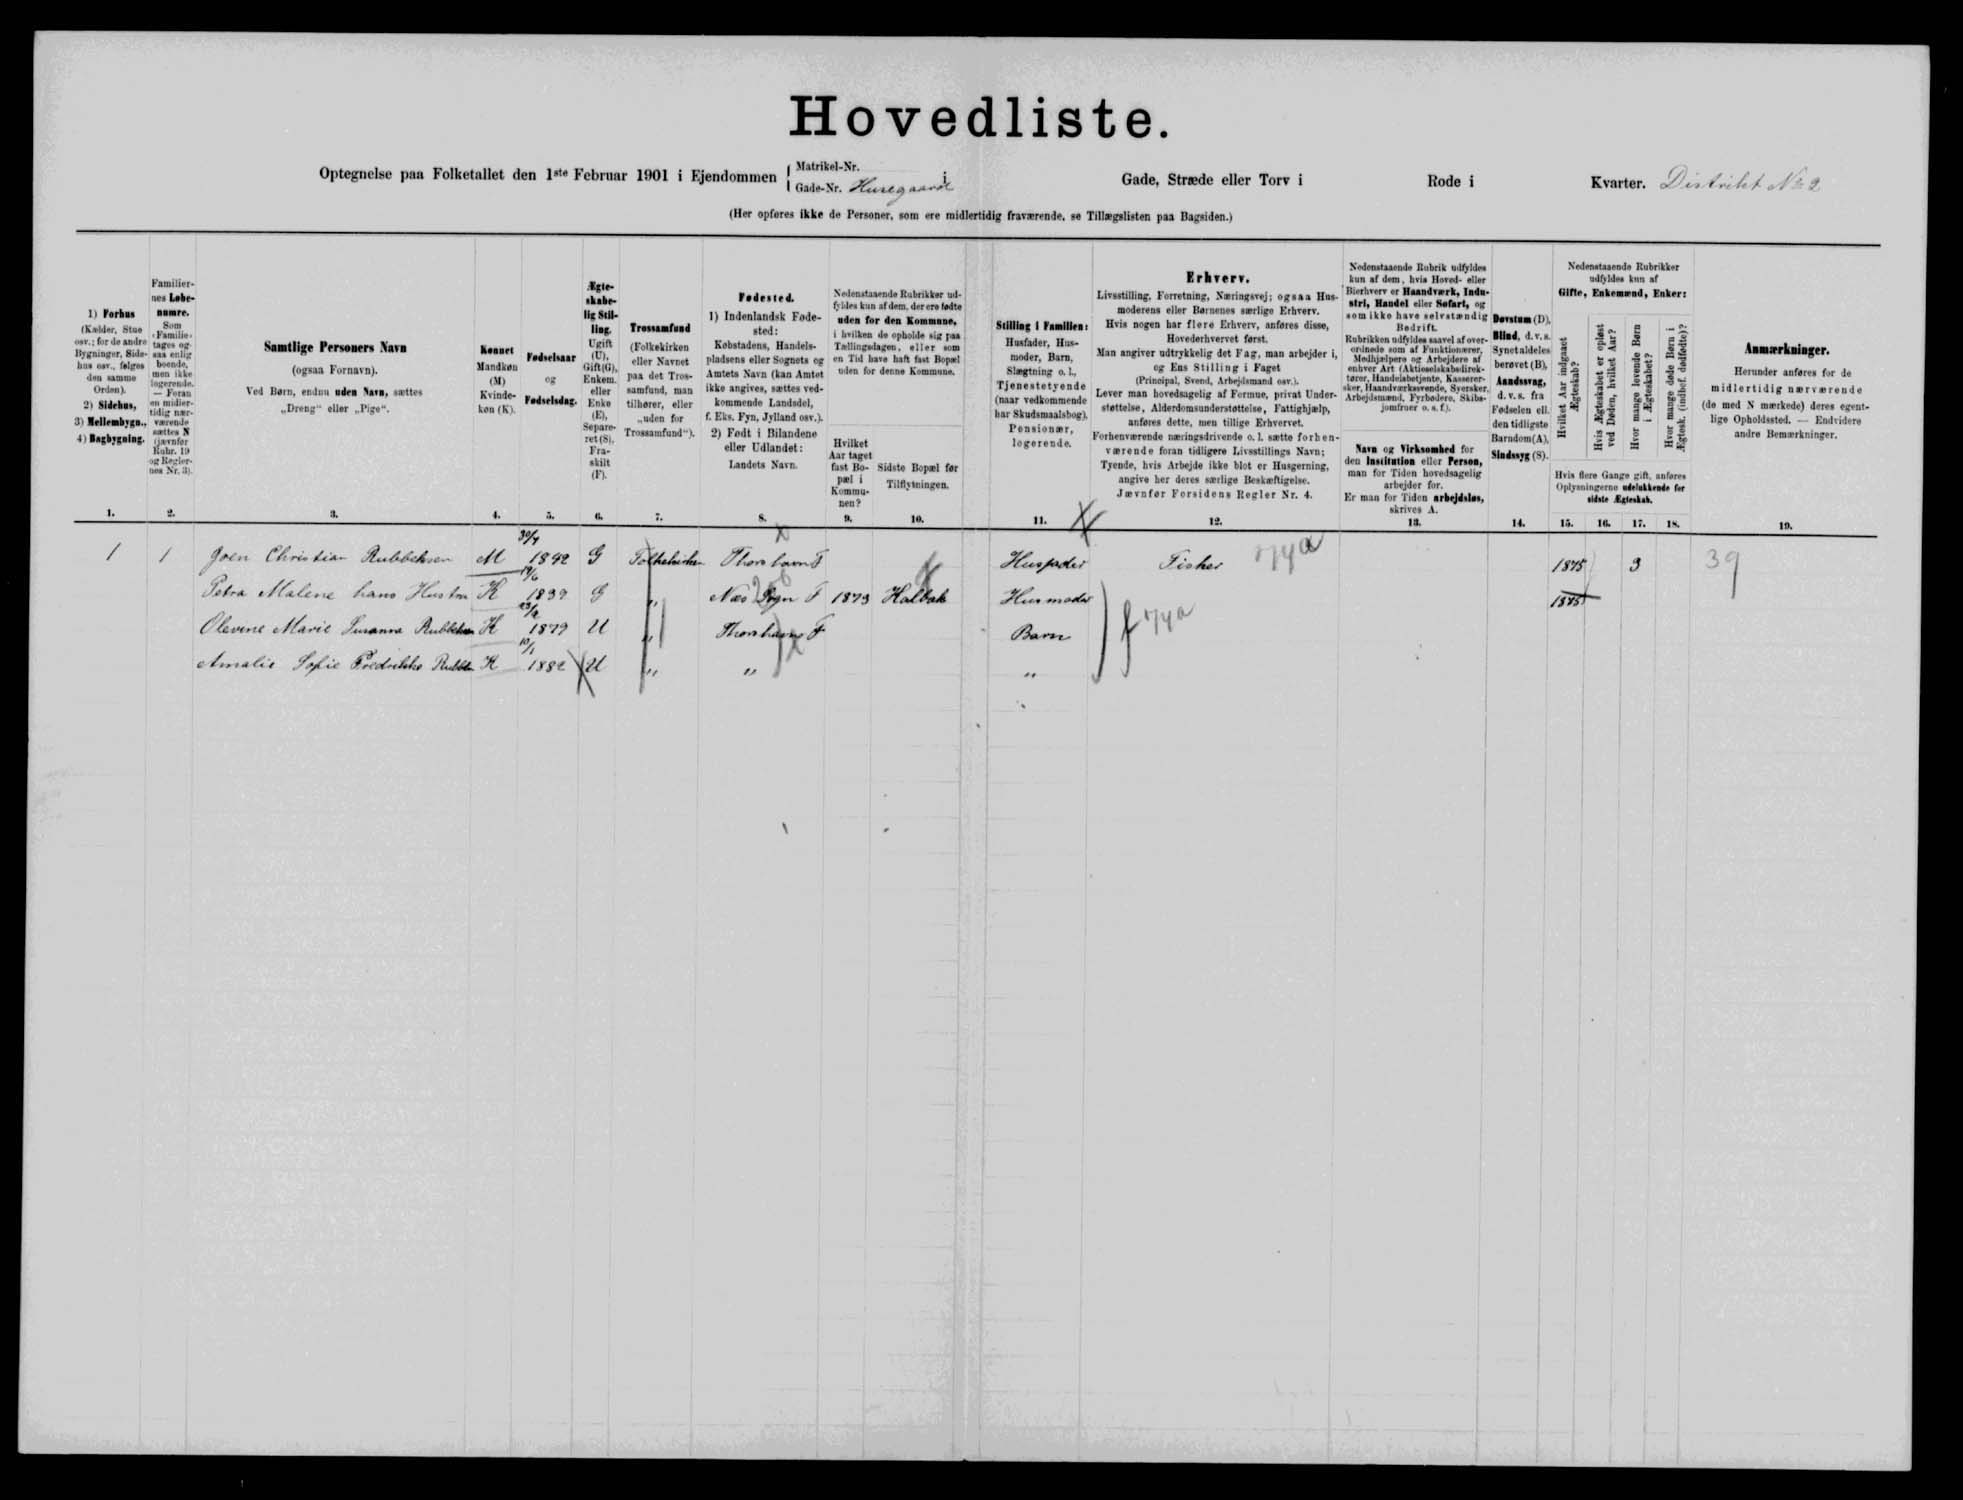 Hovedliste.
Optegnelse paa Folketallet den 1ste Februar 1901 i Ejendommen { Matrikel-Nr.
Gade-Nr. Husegaard i Gade, Stræde eller Torv i Rode i Kvarter. Distrikt No 2
(Her opføres ikke de Personer, som ere midlertidig fraværende, se Tillægslisten paa Bagsiden.)
1) Forhus
(Kælder, Stue
osv.; for de andre
Bygninger, Side-
hus osv., følges
den samme
Orden).
2) Sidehus,
3) Mellembygn.,
4) Bagbygning.
1.
Familier-
nes Løbe-
numre.
Som
»Familie«
tages og-
saa enlig
boende,
men ikke
logerende.
— Foran
en midler-
tidig nær-
værende
sættes N
(jævnfør
Rubr. 19
og Regler-
nes Nr. 3).
2.
Samtlige Personers Navn
(ogsaa Fornavn).
Ved Børn, endnu uden Navn, sættes
„Dreng“ eller „Pige“.
3.
Kønnet
Mandkøn
(M)
Kvinde-
køn (K).
4.
Fødselsaar
og
Fødselsdag.
5.
Ægte-
skabe-
lig Stil-
ling.
Ugift
(U),
Gift(G),
Enkem.
eller
Enke
(E),
Separe-
ret (S),
Fra-
skilt
(F).
6.
Trossamfund
(Folkekirken
eller Navnet
paa det Tros-
samfund, man
tilhører, eller
„uden for
Trossamfund“).
7.
Fødested.
1) Indenlandsk Føde-
sted:
Købstadens, Handels-
pladsens eller Sognets og
Amtets Navn (kan Amtet
ikke angives, sættes ved-
kommende Landsdel,
f. Eks. Fyn, Jylland osv.).
2) Født i Bilandene
eller Udlandet:
Landets Navn.
8.
Nedenstaaende Rubrikker ud-
fyldes kun af dem, der ere fødte
uden for den Kommune,
i hvilken de opholde sig paa
Tællingsdagen, eller som
en Tid have haft fast Bopæl
uden for denne Kommune.
Hvilket
Aar taget
fast Bo-
pæl i
Kommu-
nen?
9.
Sidste Bopæl før
Tilflytningen.
10.
Stilling i Familien:
Husfader, Hus-
moder, Barn,
Slægtning o. l.,
Tjenestetyende
(naar vedkommende
har Skudsmaalsbog),
Pensionær,
logerende.
11.
Erhverv.
Livsstilling, Forretning, Næringsvej; ogsaa Hus-
moderens eller Børnenes særlige Erhverv.
Hvis nogen har flere Erhverv, anføres disse,
Hovederhvervet først.
Man angiver udtrykkelig det Fag, man arbejder i,
og Ens Stilling i Faget
(Principal, Svend, Arbejdsmand osv.).
Lever man hovedsagelig af Formue, privat Under-
støttelse, Alderdomsunderstøttelse, Fattighjælp,
anføres dette, men tillige Erhvervet.
Forhenværende næringsdrivende o. l. sætte forhen-
værende foran tidligere Livsstillings Navn;
Tyende, hvis Arbejde ikke blot er Husgerning,
angive her deres særlige Beskæftigelse.
Jævnfør Forsidens Regler Nr. 4.
12.
Nedenstaaende Rubrik udfyldes
kun af dem, hvis Hoved- eller
Bierhverv er Haandværk, Indu-
stri, Handel eller Søfart, og
som ikke have selvstændig
Bedrift.
Rubrikken udfyldes saavel af over-
ordnede som af Funktionærer,
Medhjælpere og Arbejdere af
enhver Art (Aktieselskabsdirek-
tører, Handelsbetjente, Kasserer-
sker, Haandværkssvende, Syersker,
Arbejdsmænd, Fyrbødere, Skibs-
jomfruer o. s. f.).
Navn og Virksomhed for
den Institution eller Person,
man for Tiden hovedsagelig
arbejder for.
Er man for Tiden arbejdsløs,
skrives A.
13.
Døvstum (D),
Blind, d. v. s.
Synet aldeles
berøvet (B),
Aandssvag,
d. v. s. fra
Fødselen ell.
den tidligste
Barndom (A),
Sindssyg (S).
14.
Nedenstaaende Rubrikker
udfyldes kun af
Gifte, Enkemænd, Enker:
Hvilket Aar indgaaet
Ægteskab?
Hvis Ægteskabet er opløst
ved Døden, hvilket Aar?
Hvor mange levende Børn
i Ægteskabet?
Hvor mange døde Børn i
Ægtesk. (indbef. dødfødte)?
Hvis flere Gange gift, anføres
Oplysningerne udelukkende for
sidste Ægteskab.
15. 16. 17. 18.
Anmærkninger.
Herunder anføres for de
midlertidig nærværende
(de med N mærkede) deres egent-
lige Opholdssted. — Endvidere
andre Bemærkninger.
19.
1 1 Joen Christian Rubeksen M 30/4 1842 G Folkekirken Thorshavn F Husfader Fisker 74a 1875 3 39
Petra Malene hans Hustru K 19/6 1839 G „ Næs Sogn F 1873 Kalbak Husmoder 1875
Olevine Marie Susanna Rubeksen K 1879 U „ Thorshavn F Barn 74a
Amalie Sofie Fredrikke K 10/1 1882 U „ „ „